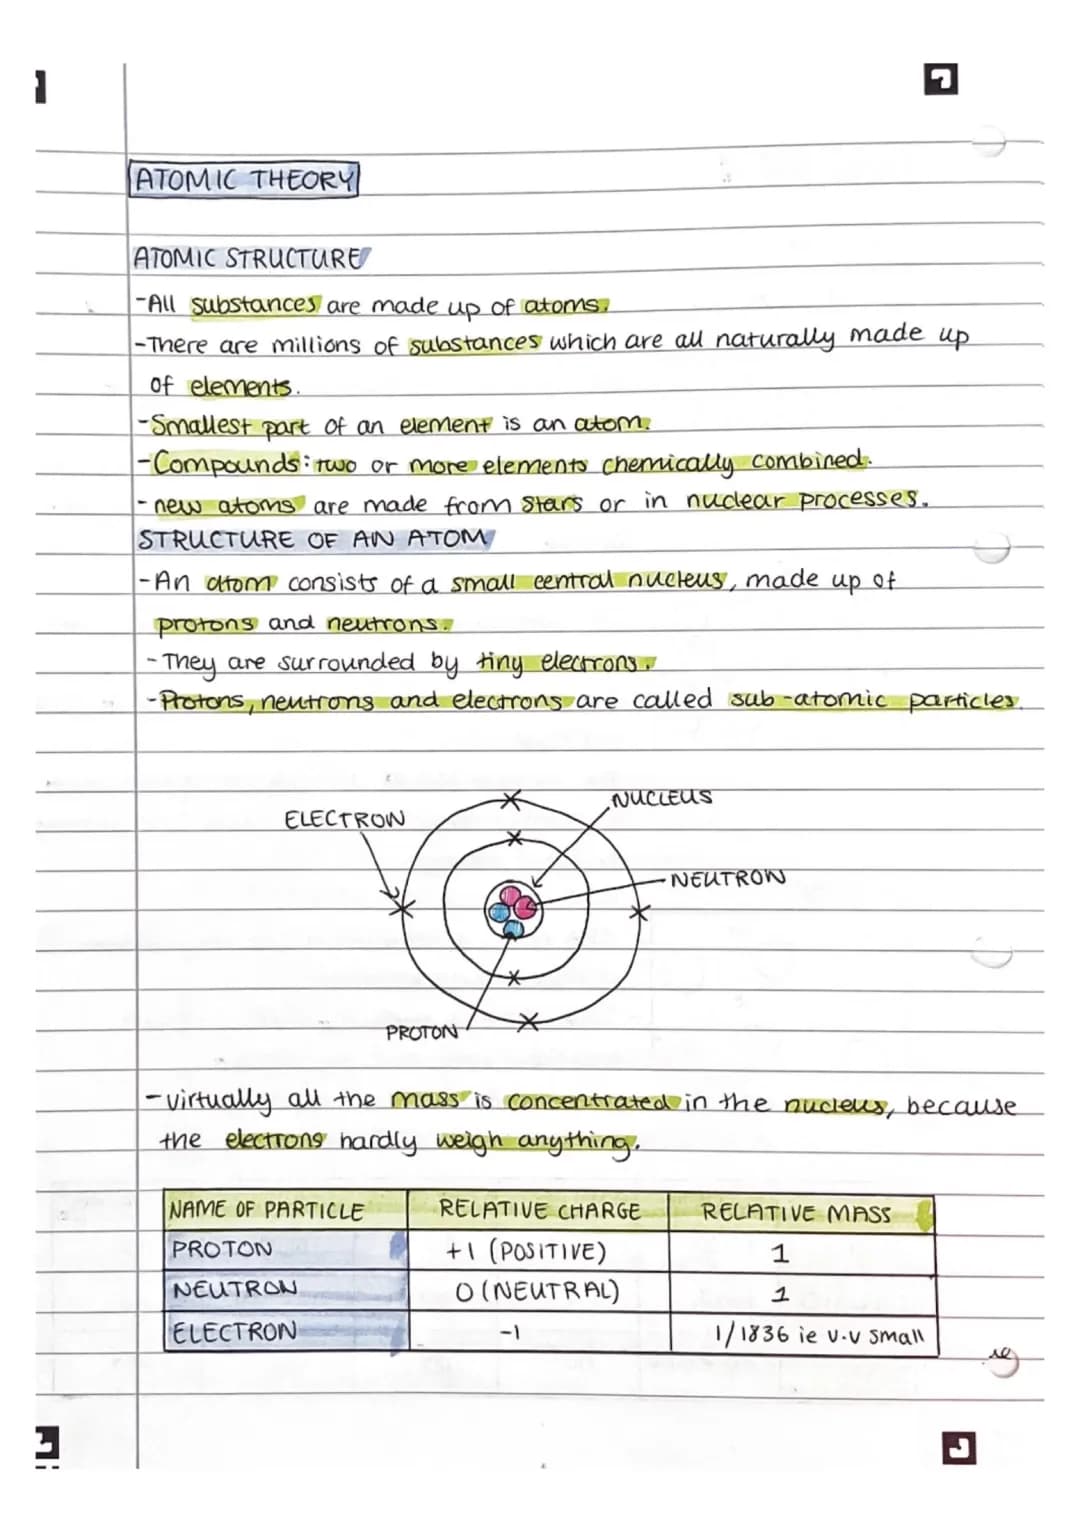 ATOMIC THEORY
ATOMIC STRUCTURE
-All substances are made up of atoms.
-There are millions of substances which are all naturally made up
of elements.
-Smallest part of an element is an atom.
-Compounds: two or more elements chemically combined.
- new atoms are made from stars or in nuclear processes.
STRUCTURE OF AN ATOM
-An atom consists of a small central nucleus, made up of
protons and neutrons.
-They are surrounded by tiny electrons.
-Protons, neutrons and electrons are called sub-atomic particles.
NUCLEUS
ELECTRON
NEUTRON
PROTON
-virtually all the mass is concentrated in the nucleus, because
the electrons hardly weigh anything.
NAME OF PARTICLE RELATIVE CHARGE RELATIVE MASS
PROTON +1 (POSITIVE) 1
NEUTRON 0 (NEUTRAL) 1
ELECTRON -1 1/1836 ie v.v small